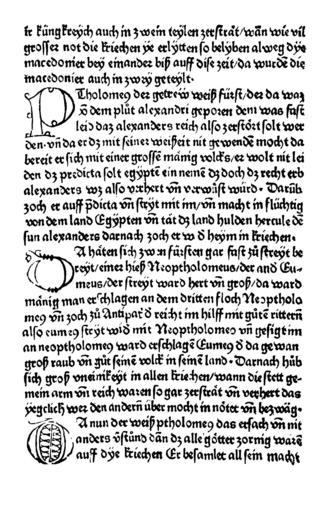 kr küngkreych auch in zwein teylen zerströt/wañ wie vil
grosser not die kriechen ye erlytten so belyben alweg dye
macedonier bey einander biß auff dise zeit/da wurde die
macedonier auch in zwey geteylt.
PTholomeg der getrew weiß fürst/der da waz
võ dem plůt alexandri geporen dem was fast
leid daz alexanders reich also zerstört solt wer
den.vñ da er dz mit seiner weißeit nit gewendē mocht da
bereit er sich mit einer grossē mänig volcks/er wolt nit lei
den dz predicta solt egyptē ein nemē dz doch dz recht erb
alexanders wz also verhert vñ verwüst wurd. Darüb
zoch er auff pdicta vñ streyt mit im/vñ macht in flüchtig
von dem land Egypten vñ tät dz land hulden hercule dē
sun alexanders darnach zoch er wider heym in kriechen.
DA hăten sich zwen fürsten gar fast zů streyt be
reyt/einer hieß Neoptholomeus/der and Eu-
meus/der streyt ward hert vñ groß/da ward
mänig man erschlagen an dem dritten floch Neoptholo
meg vñ zoch zů Antipar der reicht im hilff mit gůtē rittern
also eumeg streyt wid mit Neoptholomeo vñ gesigt im
an neoptholomeg ward erschlagē Eumeg der da gewan
groß raub vñ gůt seinē volck in seinē land. Darnach hůb
sich groß vneinikeyt in allen kriechen/wann die stett ge-
mein arm vñ reich waren so gar zerströt vñ verhert das
yeglich wer den andern über mocht in nötet vñ bezwäg.
DA nun der weiß ptholomeg das ersach vñ nit
anders verstůnd dañ dz alle götter zornig warē
auff dye kriechen Er besamlet all sein macht